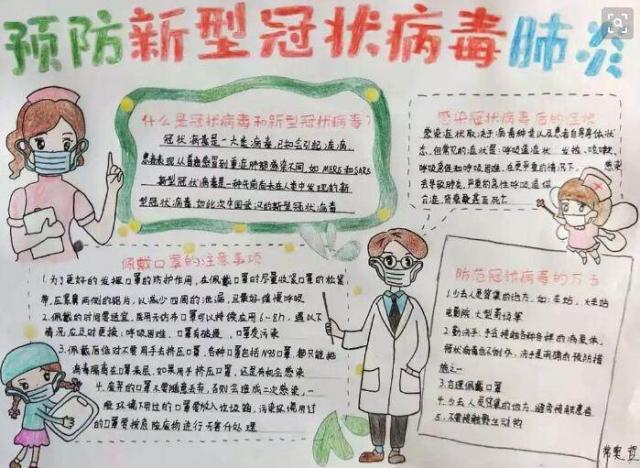 预防新型冠状病毒肺炎
什么是冠状病毒和新型冠状病毒?
冠状病毒是一大类病毒,已知会引起疾病,
患者表现从普通感冒到重症肺部感染不同,如MERS和SARS
新型冠状病毒是一种先前尚未在人类中发现的新
型冠状病毒,如此次中国武汉的新型冠状病毒
感染冠状病毒后的症状
感染症状取决于病毒种类以及患者自身身体状
态,但常见的症状有:呼吸道症状、发热、咳嗽、
呼吸急促和呼吸困难,在更严重的情况下,感染
会导致肺炎、严重的急性呼吸道综
合征、肾衰竭甚至死亡
佩戴口罩的注意事项
1.为了更好的发挥口罩的防护作用,在佩戴口罩时尽量收紧口罩的松紧
带,压紧鼻两侧的铝片,以减少四周的泄漏,且最好缓慢呼吸
2.佩戴的时间需适宜,医用无纺布口罩可以持续应用6-8h,遇以下
情况,应及时更换:呼吸困难、口罩有破损、口罩受污染
3.佩戴后绝对不要用手去挤压口罩,各种口罩包括N95口罩,都只能把
病毒隔离在口罩表层,如果用手挤压口罩,还是有机会感染
4.废弃的口罩不要随意丢弃,否则会造成二次感染,一
般环境下用过的口罩要放入垃圾箱,污染环境用过
的口罩要按危险废物进行无害化处理
防范冠状病毒的方法
1.少去人员密集的地方,如:车站、火车站
电影院、大型商场等
2.勤洗手:手会接触各种各样的病原体,
冠状病毒也不例外,洗手是两痛的预防措
施之一
3.合理佩戴口罩
4.少去人员密集的地方,避免接触患者
5.不要接触野生动物